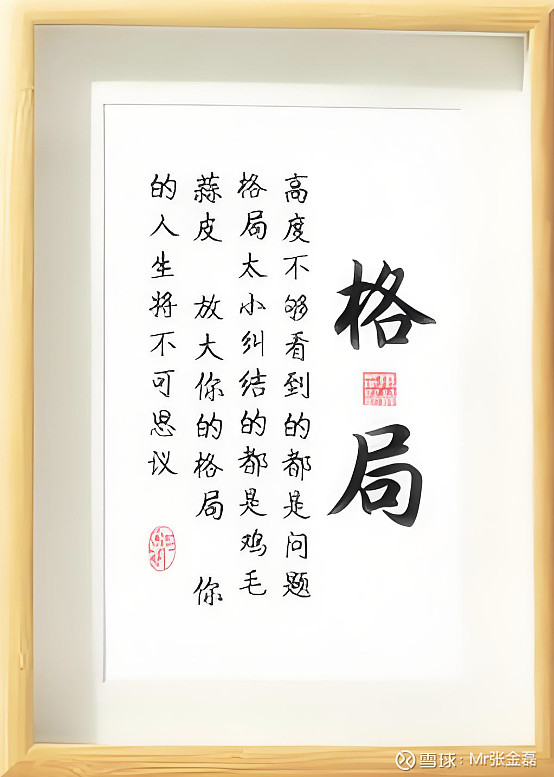 格局
高度不够看到的都是问题
格局太小纠结的都是鸡毛
蒜皮 放大你的格局 你
的人生将不可思议
雪球:Mr张金磊